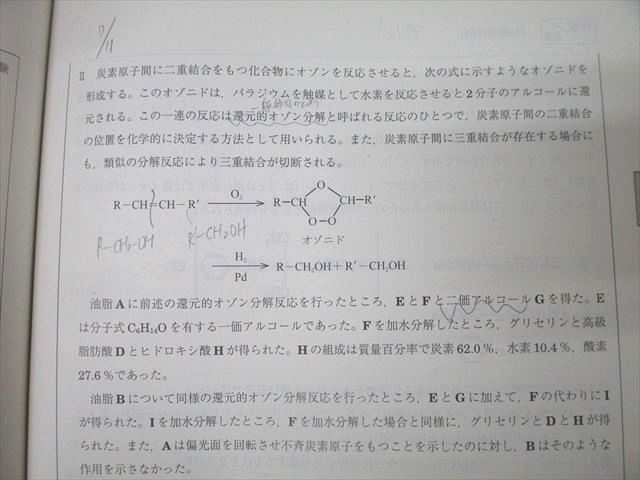 11/11
Ⅱ 炭素原子間に二重結合をもつ化合物にオゾンを反応させると，次の式に示すようなオゾニドを
形成する。このオゾニドは，パラジウムを触媒として水素を反応させると2分子のアルコールに還
元される。この一連の反応は還元的オゾン分解と呼ばれる反応のひとつで，炭素原子間の二重結合
の位置を化学的に決定する方法として用いられる。また，炭素原子間に三重結合が存在する場合に
も，類似の分解反応により三重結合が切断される。
R−CH=CH−R′ O₃ R−CH O CH−R′ O−O
オゾニド
R-CH₂-OH R'-CH₂OH
H₂ Pd R−CH₂OH＋R′−CH₂OH
油脂Aに前述の還元的オゾン分解反応を行ったところ，EとFと二価アルコールGを得た。E
は分子式C₆H₁₄Oを有する一価アルコールであった。Fを加水分解したところ，グリセリンと高級
脂肪酸Dとヒドロキシ酸Hが得られた。Hの組成は質量百分率で炭素62.0％，水素10.4％，酸素
27.6％であった。
油脂Bについて同様の還元的オゾン分解反応を行ったところ，EとGに加えて，Fの代わりにI
が得られた。Iを加水分解したところ，Fを加水分解した場合と同様に，グリセリンとDとHが得
られた。また，Aは偏光面を回転させ不斉炭素原子をもつことを示したのに対し，Bはそのような
作用を示さなかった。